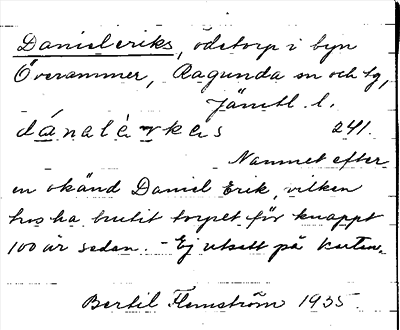 Danieleriks, ödetorp i byn
Överammer, Ragunda sn och tg,
Jämtl. l.
dánalèrkes 241.
Namnet efter
en okänd Daniel Erik, vilken
brutit torpet för knappt
100 år sedan. - Ej utsatt på kartan.
Bertil Flemström 1935.